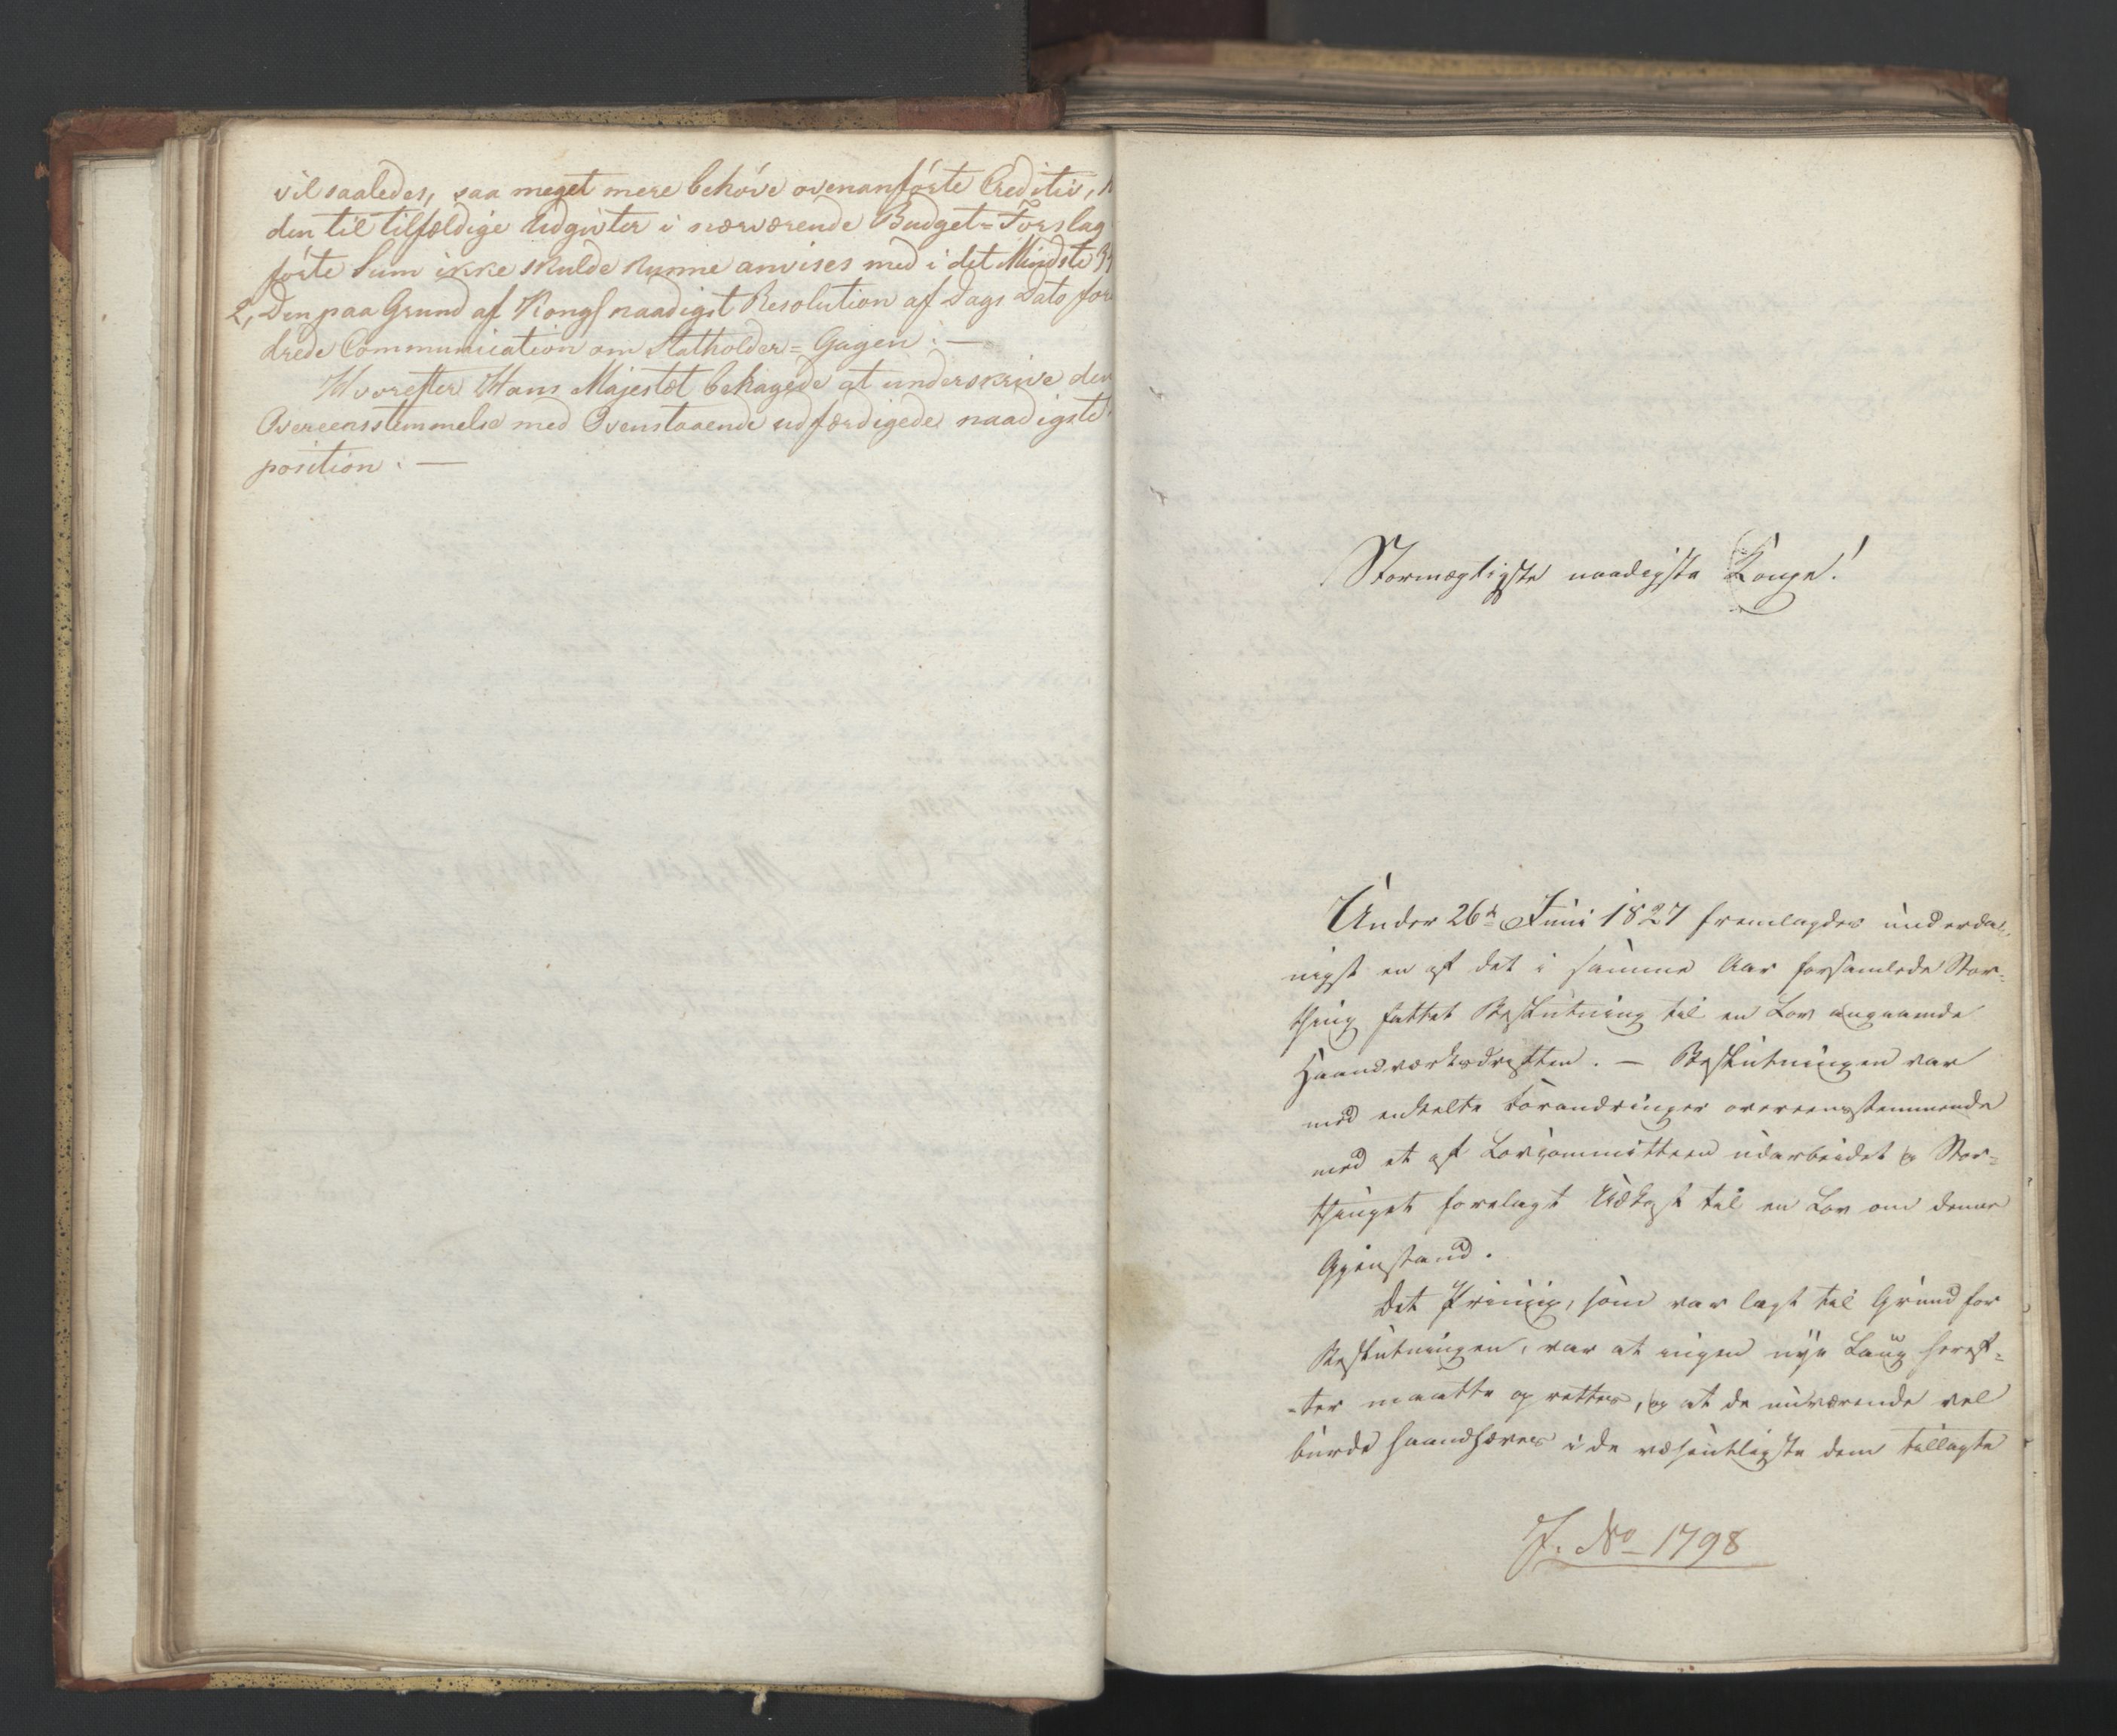 vil saaledes, saa meget mere behöve ovenanförte Creditiv,
den til tilfældige Udgivter i nærværende Budget=Forslag
förte Sum ikke skulde kunne anvises med i det Mindste
2, Den paa Grund af Kongl naadigst Resolution af Dags Dato for
drede Communication om Statholder=Gagen. —
Hvorefter Hans Majestæt behagede at underskrive den
Overeensstemmelse med Ovenstaaende udfærdigede naadigste
position. —
Stormægtigste naadigste Konge!
Under 26de Juni 1827 fremlagdes underda-
nigst en af det i samme Aar forsamlede Stor-
thing fattet Beslutning til en Lov angaaende
Haandværksdriften. — Beslutningen var
med enkelte Forandringer overeensstemmende
med et af Lovcommitteen udarbeidet og Stor-
thinget forelagt Udkast til en Lov om denne
Gjenstand.
Det Princip, som var lagt til Grund for
Beslutningen, var at ingen nye Laug heref-
-ter maatte oprettes, og at de nuværende vel
burde haandhæves i de væsentligste dem tillagte
J. No 1798